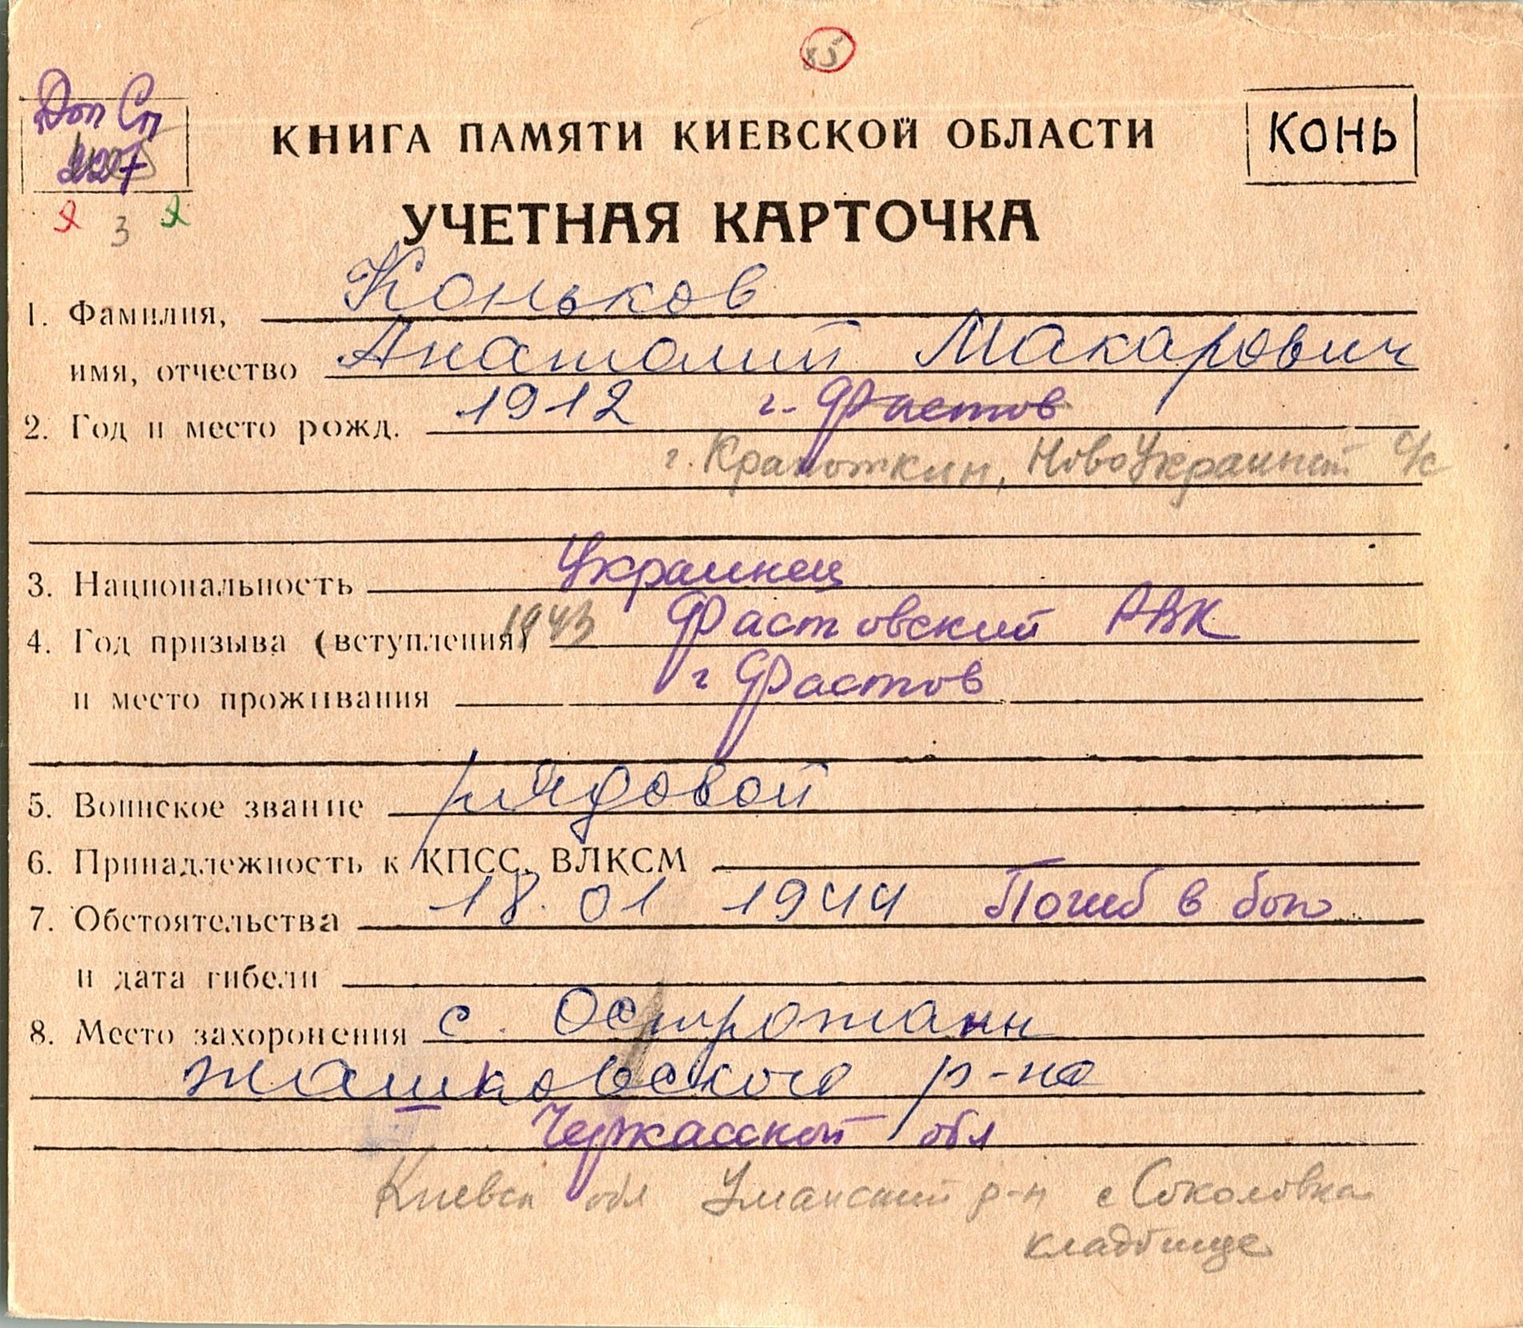 85
Доп Сп
227
3
КОНЬ
КНИГА ПАМЯТИ КИЕВСКОЙ ОБЛАСТИ
УЧЕТНАЯ КАРТОЧКА
1. Фамилия, Коньков
имя, отчество Анатолий Макарович
2. Год и место рожд. 1912 г. Фастов
г. Крапоткин, НовоУкраиный с/с
3. Национальность Украинец
4. Год призыва (вступления) 1943 Фастовский РВК
и место проживания г Фастов
5. Воинское звание рядовой
6. Принадлежность к КПСС, ВЛКСМ
7. Обстоятельства 18. 01 1944 Погиб в бою
и дата гибели
8. Место захоронения с. Острожанн
жашковского р-на
Черкасской обл
Киевск обл Уманский р-н с Соколовка
кладбище